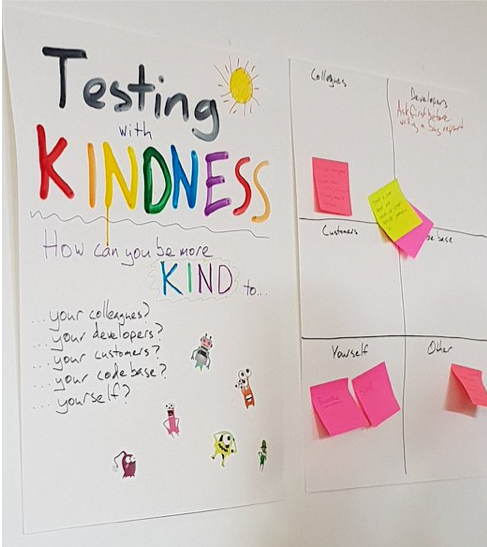 Testing
with
KINDNESS
How can you be more
KIND to...
...your colleagues?
...your developers?
...your customers?
...your codebase?
...yourself?
Collegues
Developers
Ask first before
writing a bug report
Customers
base
Yourself
Other